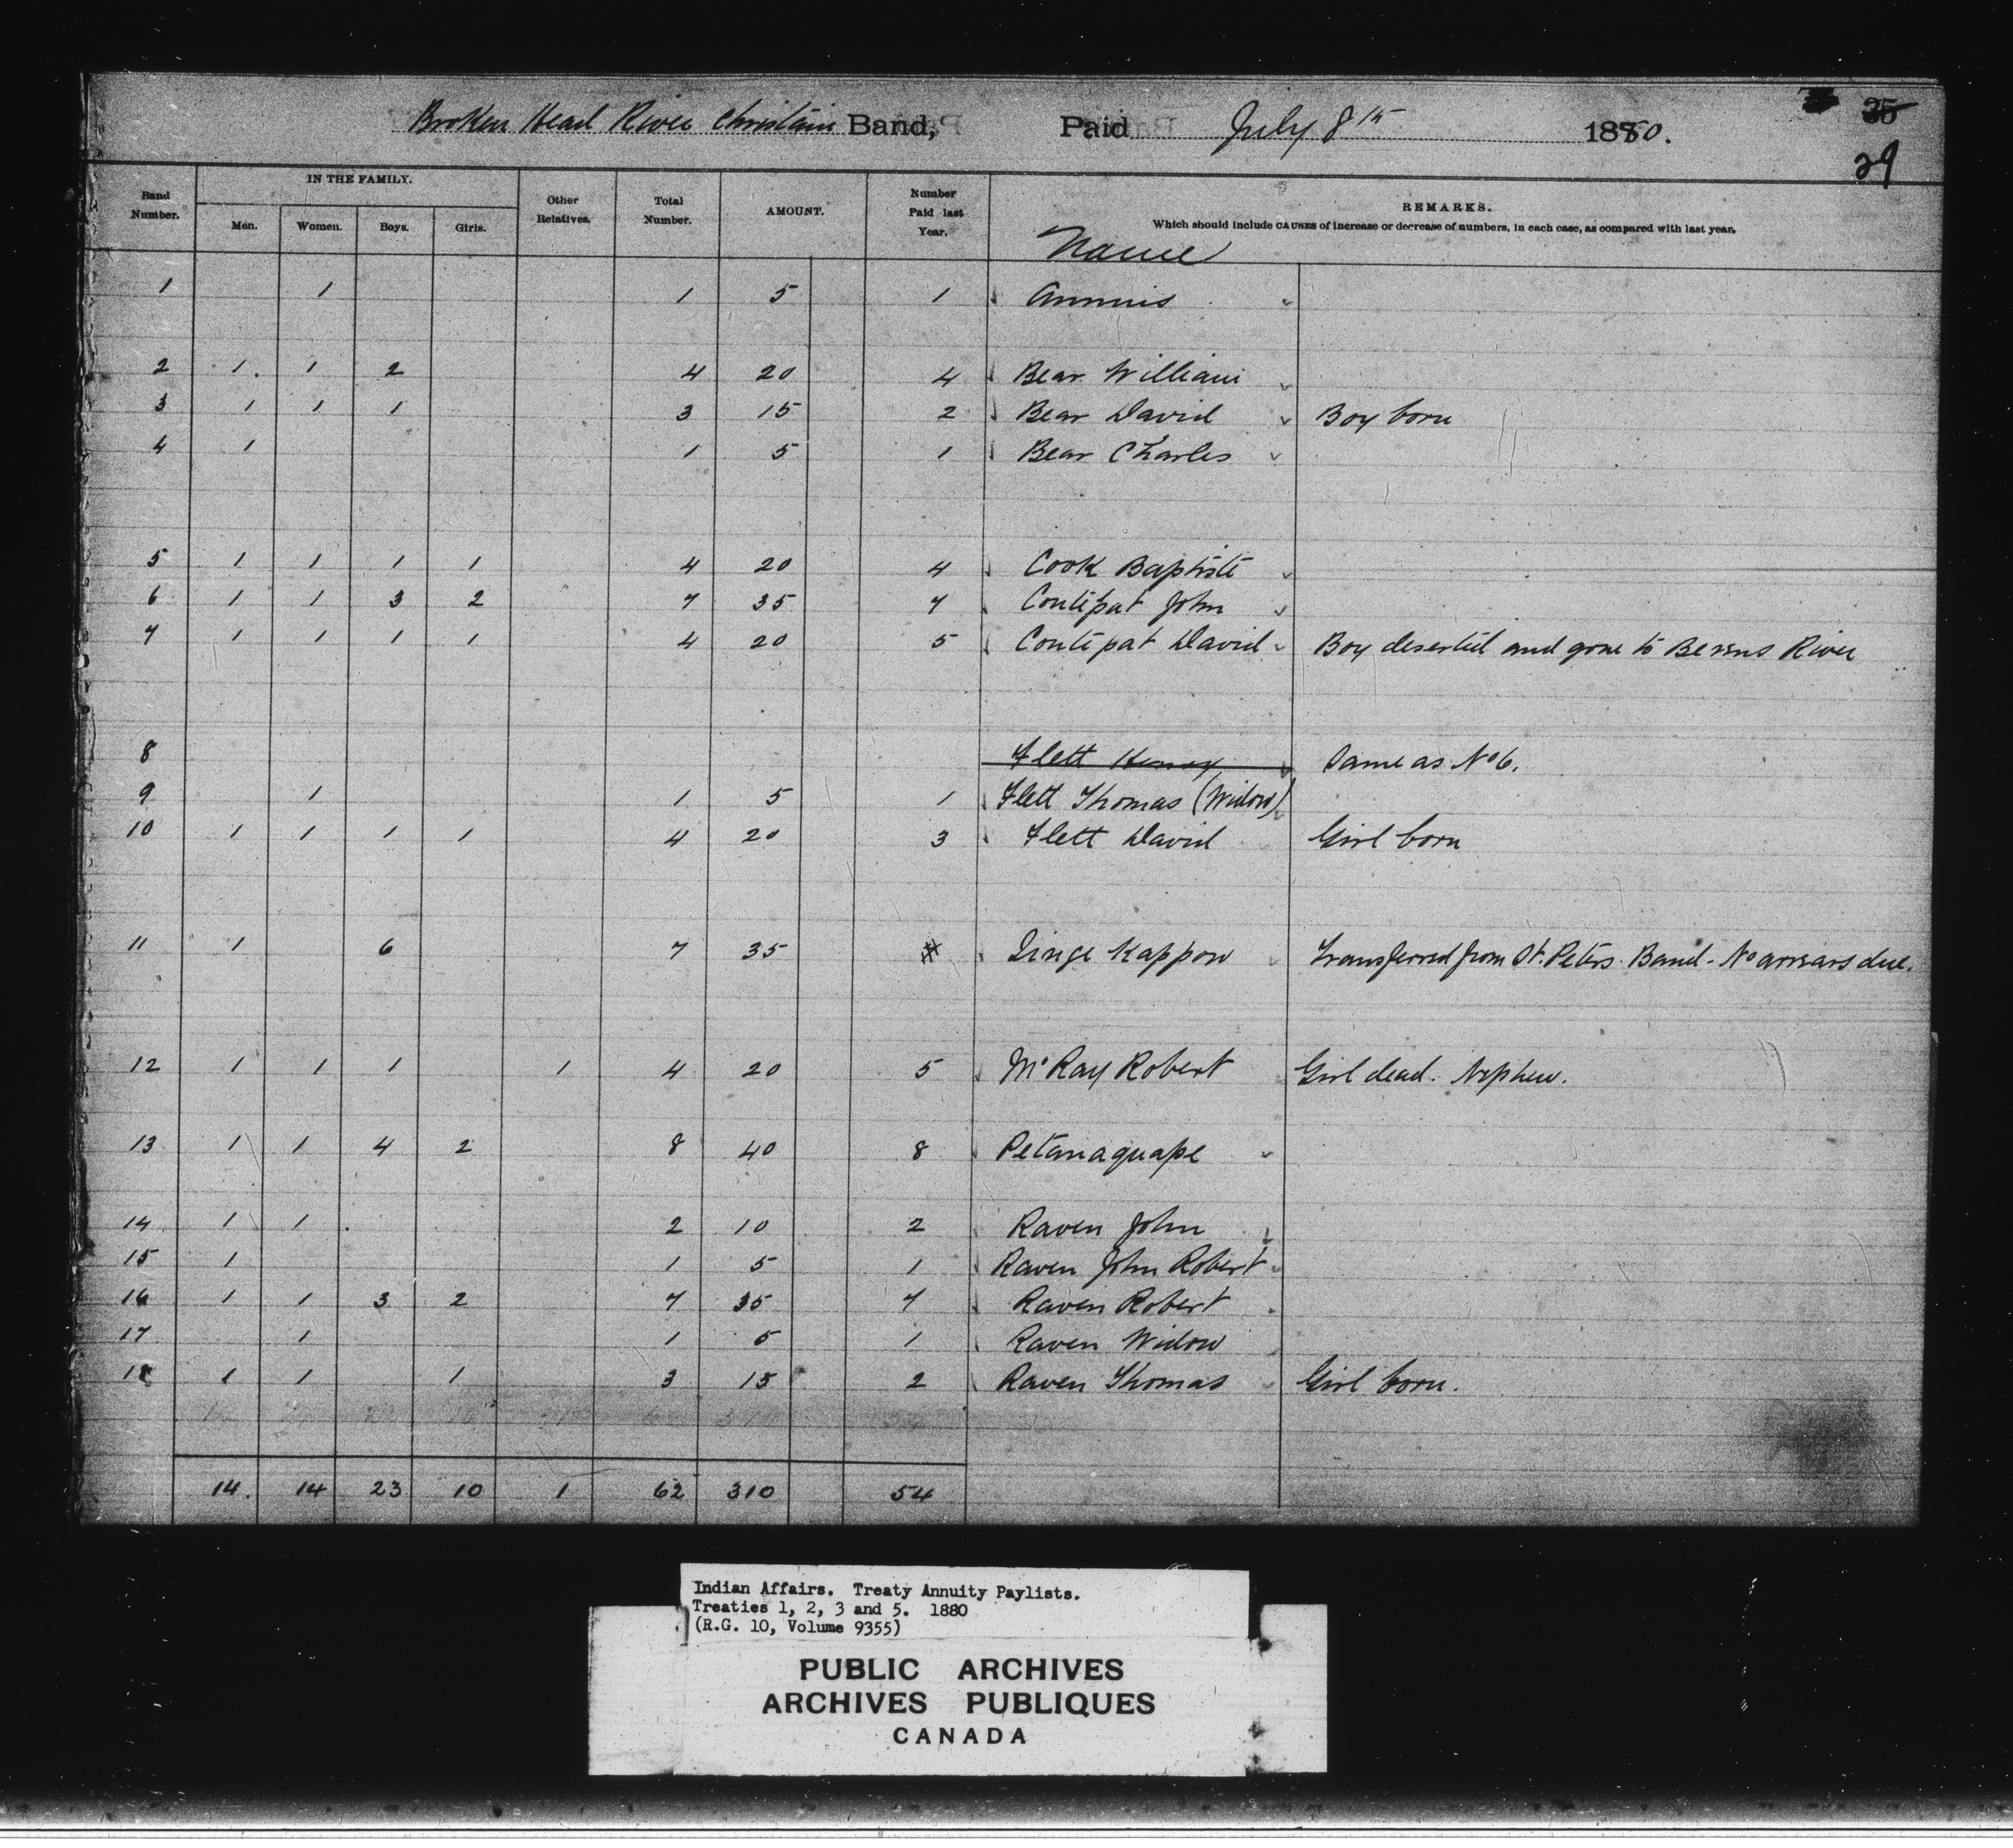 Broken Head River Christain Band, Paid July 8th 1880. 35
29
Band Number. IN THE FAMILY. Men. Women. Boys. Girls. Other Relatives. Total Number. AMOUNT. Number Paid last Year. REMARKS.
Which should include CAUSES of increase or decrease of numbers, in each case, as compared with last year.
Name
1 1 1 5 1 Annuis
2 1 1 2 4 20 4 Bear William
3 1 1 1 3 15 2 Bear David Boy born
4 1 1 5 1 Bear Charles
5 1 1 1 1 4 20 4 Cook Baptiste
6 1 1 3 2 7 35 7 Contepat John
7 1 1 1 1 4 20 5 Contepat David Boy deserted and gone to Berens River
8 Flett Henry Same as No 6.
9 1 1 5 1 Flett Thomas (Widow)
10 1 1 1 1 4 20 3 Flett David Girl born
11 1 6 7 35 Kappow Transferred from St. Peters Band - No arrears due.
12 1 1 1 1 4 20 5 McRay Robert Girl dead. Nephew.
13 1 1 4 2 8 40 8 Petanaquape
14 1 1 2 10 2 Raven John
15 1 1 5 1 Raven John Robert
16 1 1 3 2 7 35 7 Raven Robert
17 1 1 5 1 Raven Widow
18 1 1 1 3 15 2 Raven Thomas Girl born.
14. 14 23 10 1 62 310 54
Indian Affairs. Treaty Annuity Paylists.
Treaties 1, 2, 3 and 5. 1880
(R.G. 10, Volume 9355)
PUBLIC ARCHIVES
ARCHIVES PUBLIQUES
CANADA